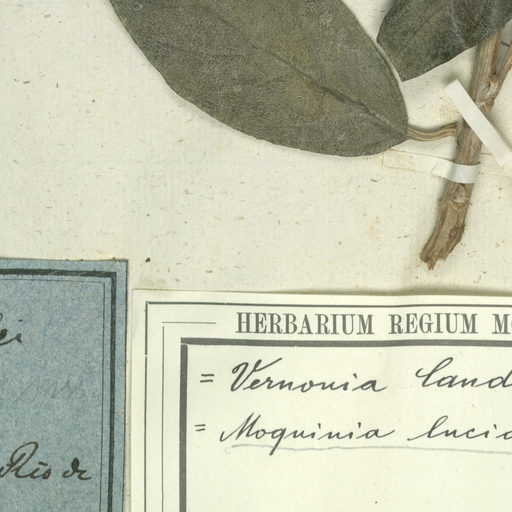 ei
Rio de
HERBARIUM REGIUM M
= Vernonia land
= Moquinia lucid